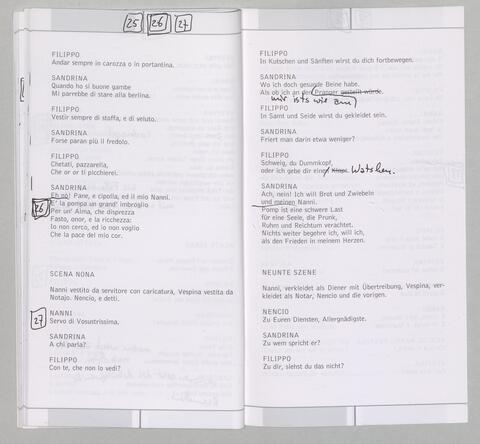 25 26 27
FILIPPO
Andar sempre in carozza o in portantina.
SANDRINA
Quando ho sì buone gambe
Mi parrebbe di stare alla berlina.
FILIPPO
Vestir sempre di stoffa, e di veluto.
SANDRINA
Forse paran più il fredolo.
FILIPPO
Chetati, pazzarella,
Che or or ti picchierei.
SANDRINA
Eh no! Pane, e cipolla, ed il mio Nanni.
26 E' la pompa un grand' imbroglio
Per un' Alma, che disprezza
Fasto, onor, e la ricchezza:
Io non cerco, ed io non voglio
Che la pace del mio cor.
SCENA NONA
Nanni vestito da servitore con caricatura, Vespina vestita da
Notajo. Nencio, e detti.
27 NANNI
Servo di Vosuntrissima.
SANDRINA
A chi parla?
FILIPPO
Con te, che non lo vedi?
FILIPPO
In Kutschen und Sänften wirst du dich fortbewegen.
SANDRINA
Wo ich doch gesunde Beine habe.
Als ob ich an den Pranger gestellt würde.
mir ists wie am
FILIPPO
In Samt und Seide wirst du gekleidet sein.
SANDRINA
Friert man darin etwa weniger?
FILIPPO
Schweig, du Dummkopf,
oder ich gebe dir eine Watschen.
SANDRINA
Ach, nein! Ich will Brot und Zwiebeln
und meinen Nanni.
Pomp ist eine schwere Last
für eine Seele, die Prunk,
Ruhm und Reichtum verachtet.
Nichts weiter begehre ich, will ich,
als den Frieden in meinem Herzen.
NEUNTE SZENE
Nanni, verkleidet als Diener mit Übertreibung, Vespina, ver-
kleidet als Notar, Nencio und die vorigen.
NENCIO
Zu Euren Diensten, Allergnädigste.
SANDRINA
Zu wem spricht er?
FILIPPO
Zu dir, siehst du das nicht?